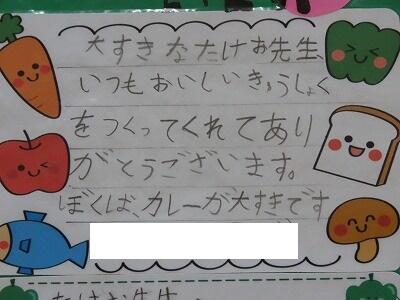 大すきなたけお先生、
いつもおいしいきゅうしょく
をつくってくれてあり
がとうございます。
ぼくは、カレーが大すきです
たけお先生、